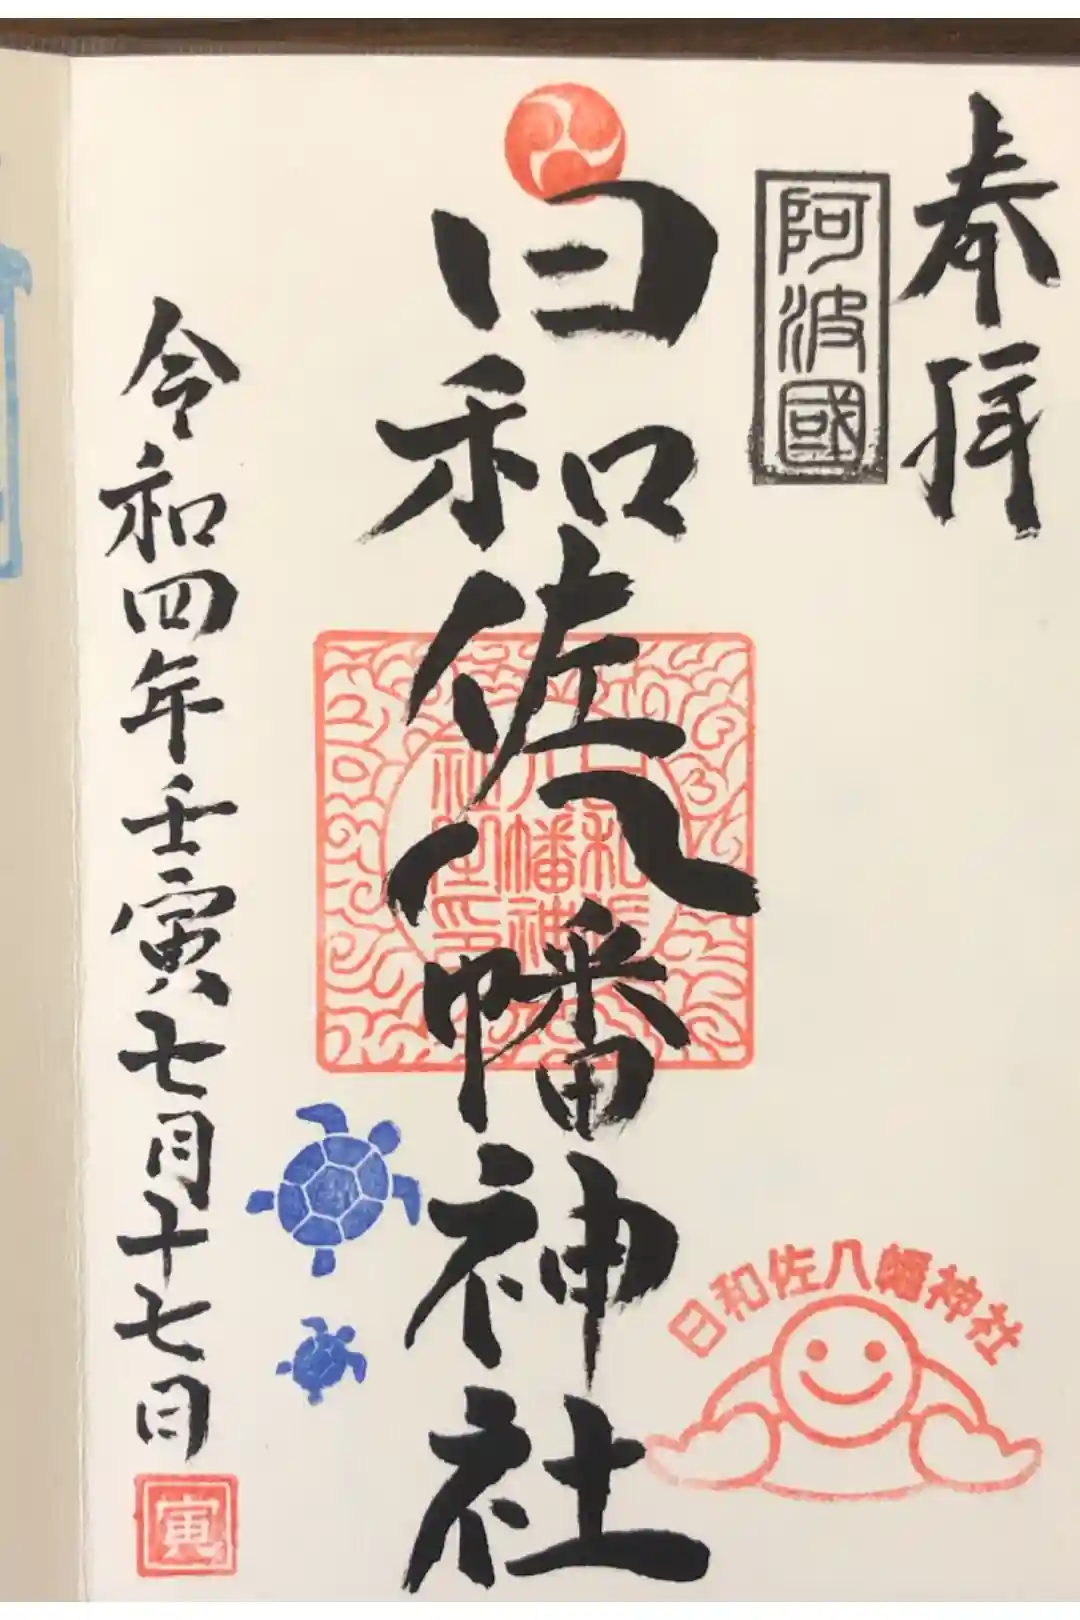 奉拝
阿波國
日和佐八幡神社
日和佐
八幡神
社
印
令和四年壬寅七月十七日
寅
日和佐八幡神社